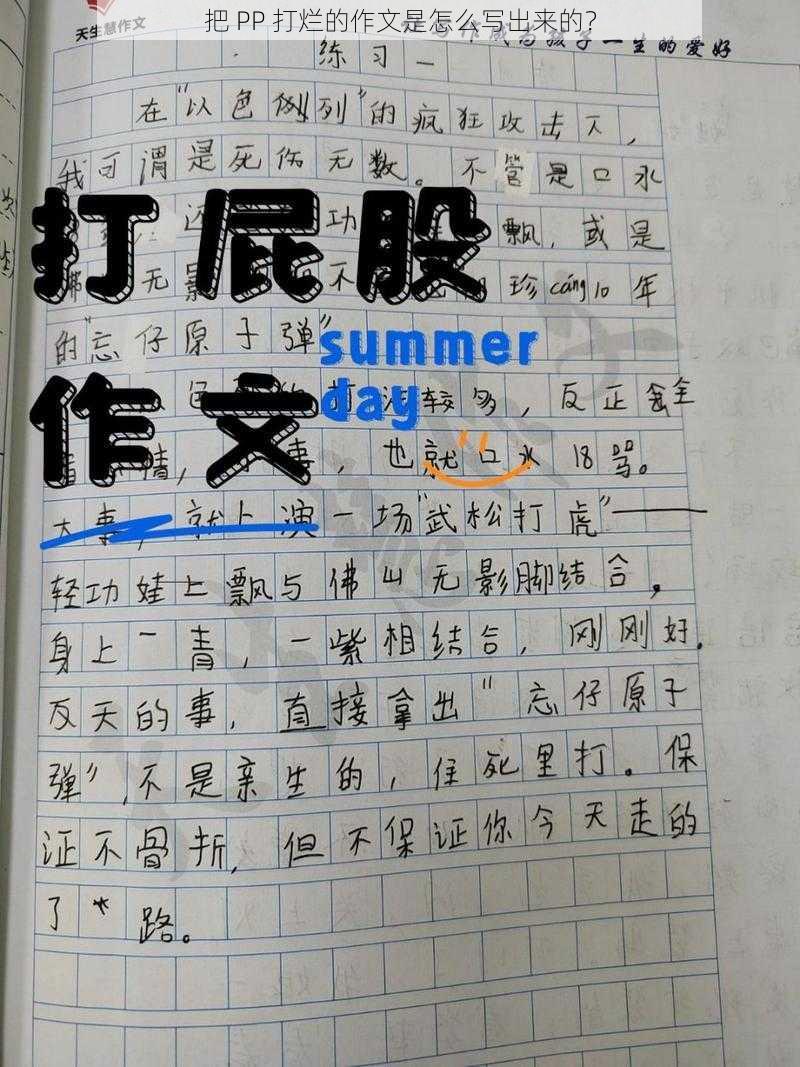 把 PP 打烂的作文是怎么写出来的？
天生慧作文
写作成为孩子一生的爱好
练习一
在“以色列”的疯狂攻击下，
我可谓是死伤无数。不管是口水
还 功 飘，或是
无影 不 珍cáng10年
的“忘仔原子弹”
打法较多，反正
情， 事，也就口水18骂。
大事，就上演一场“武松打虎”——
轻功娃上飘与佛山无影脚结合，
身上一青，一紫相结合，刚刚好。
反天的事，直接拿出“忘仔原子
弹”，不是亲生的，往死里打。保
证不骨折，但不保证你今天走的
了 路。
打屁股
作文
summer
day